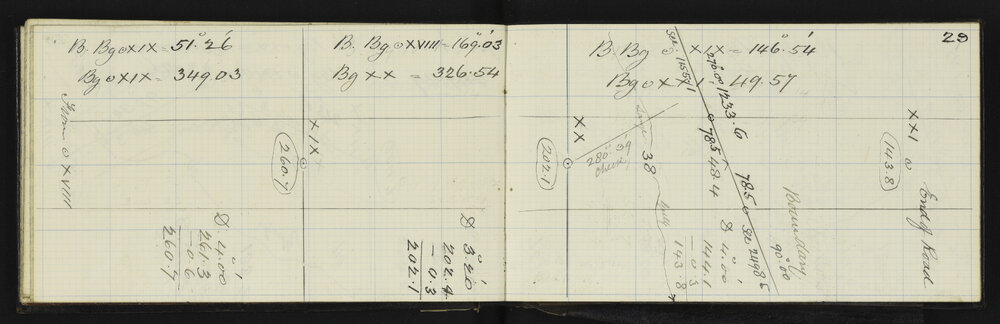 B. Bg ⊙ XIX = 51°.26'
Bg ⊙ XIX = 349.03
From ⊙ XVIII
XIX
260.7
D 4°.00'
261.3
- 0.6
260.7
B. Bg ⊙ XVIII = 169°.03'
Bg XX = 326.54
D 3°.20'
202.4
- 0.3
202.1
29
B. Bg ⊙ XIX = 146°.54'
Bg ⊙ XXI 49.57
XX
202.1
280° 39
check
38
270°.00 1233.6
785 48.4
785
Boundary
90°.00
D 4°.00'
144.1
- 0.3
143.8
XXI ⊙
143.8
End of Road